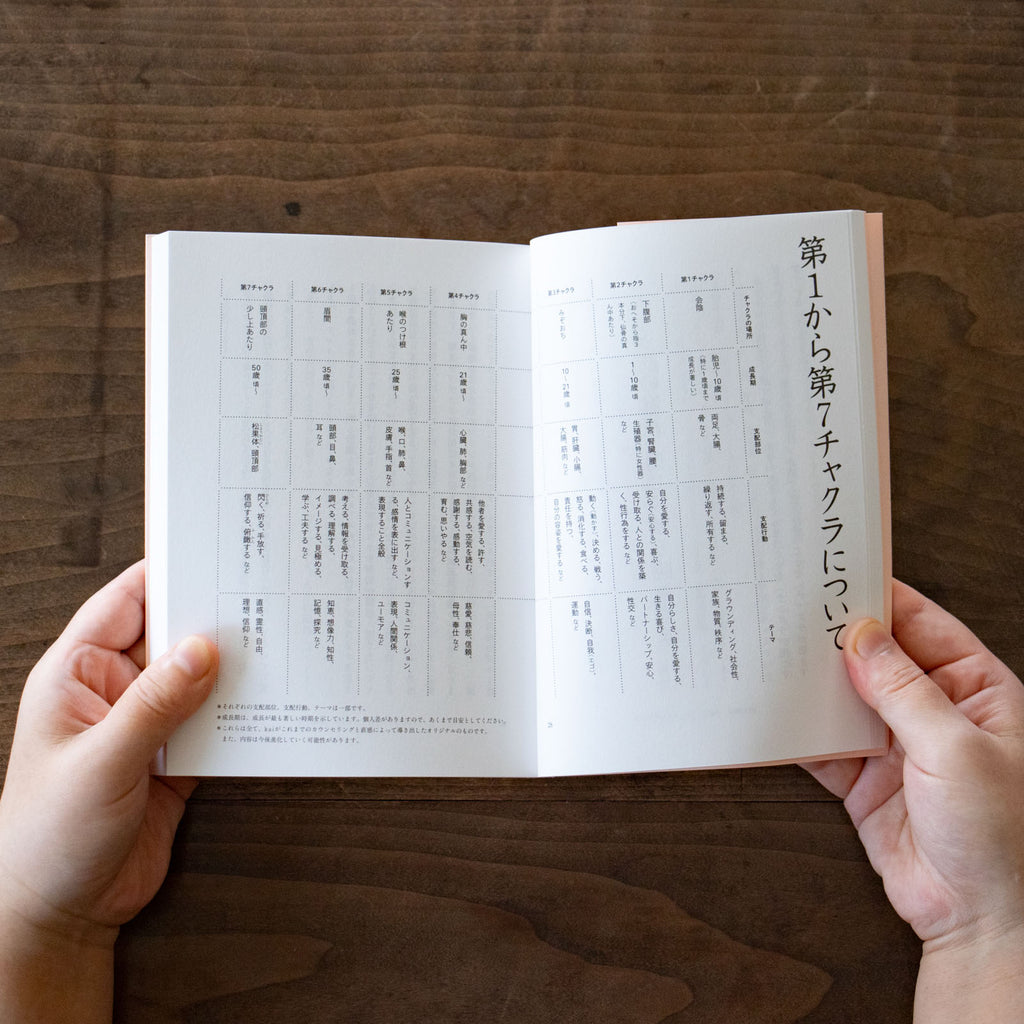 第1から第7チャクラについて
チャクラの場所
成長期
支配部位
支配行動
テーマ
第1チャクラ
会陰
胎児〜10歳頃
（特に1歳頃まで
成長が著しい）
両足、大腸、
骨 など
持続する、留まる、
繰り返す、所有する など
グラウンディング、社会性、
家族、物質、秩序 など
第2チャクラ
下腹部
（おへそから指3
本分下、仙骨の真
ん中あたり）
1〜
10歳頃
子宮、腎臓、腰、
生殖器（特に女性器）
など
自分を愛する、
安らぐ（安心する）、喜ぶ、
受け取る、人との関係を築
く、性行為をする など
自分らしさ、自分を愛する、
生きる喜び、
パートナーシップ、安心、
性交 など
第3チャクラ
みぞおち
10
〜21歳頃
胃、肝臓、小腸、
大腸、筋肉 など
動く（動かす）、決める、戦う、
怒る、消化する、食べる、
責任を持つ、
自分の容姿を愛する など
自信、決断、自我（エゴ）、
運動 など
第4チャクラ
胸の真ん中
21歳頃〜
心臓、肺、胸部 など
他者を愛する、許す、
共感する、空気を読む、
感謝する、感動する、
育む、思いやる など
慈愛、慈悲、信頼、
母性、奉仕 など
第5チャクラ
喉のつけ根
あたり
25歳頃〜
喉、口、肺、鼻、
皮膚、手指、首 など
人とコミュニケーションす
る、感情を表に出す など、
表現すること全般
コミュニケーション、
表現、人間関係、
ユーモア など
第6チャクラ
眉間
35歳頃〜
頭部、目、鼻、
耳 など
考える、情報を受け取る、
調べる、理解する、
イメージする、見極める、
学ぶ、工夫する など
知恵、想像力、知性、
記憶、探究 など
第7チャクラ
頭頂部の
少し上あたり
50歳頃〜
松果体、頭頂部
閃く、祈る、手放す、
信仰する、俯瞰する など
直感、霊性、自由、
理想、信仰 など
＊それぞれの支配部位、支配行動、テーマは一部です。
＊成長期は、成長が最も著しい時期を示しています。個人差がありますので、あくまで目安としてください。
＊これらは全て、kaiがこれまでのカウンセリングと直感によって導き出したオリジナルのものです。
また、内容は今後進化していく可能性があります。